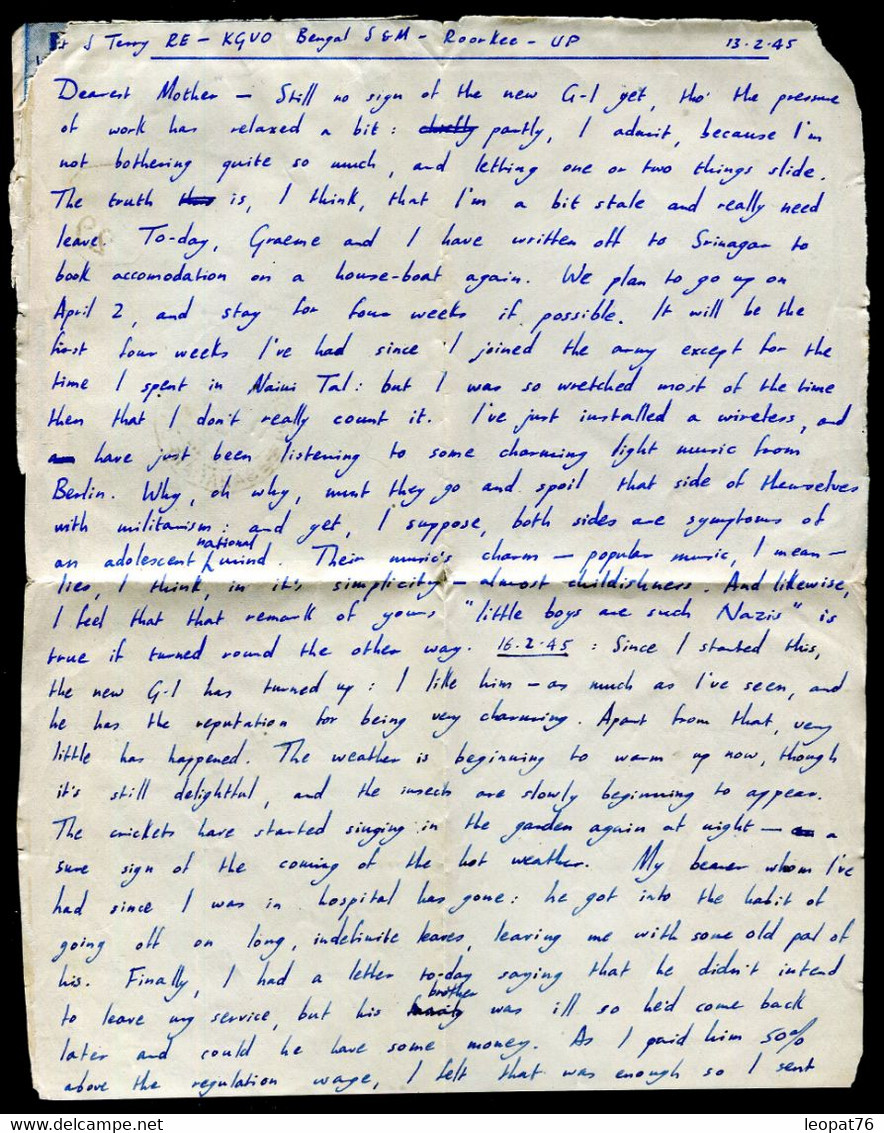 S Terry RE - KGVO Bengal S & M - Roorkee - UP 13.2.45
Dearest Mother - Still no sign of the new G-1 yet, tho' the pressure
of work has relaxed a bit: chiefly partly, I admit, because I'm
not bothering quite so much, and letting one or two things slide.
The truth is, I think, that I'm a bit stale and really need
leave. To-day, Graeme and I have written off to Srinagar to
book accomodation on a house-boat again. We plan to go up on
April 2, and stay for four weeks if possible. It will be the
first four weeks I've had since I joined the army except for the
time I spent in Naini Tal: but I was so wretched most of the time
then that I don't really count it. I've just installed a wireless, and
have just been listening to some charming light music from
Berlin. Why, oh why, must they go and spoil that side of themselves
with militarism: and yet, I suppose, both sides are symptoms of
an adolescent national mind. Their music's charm - popular music, I mean -
lies, I think, in it's simplicity - almost childishness. And likewise,
I feel that that remark of yours "little boys are such Nazis" is
true if turned round the other way. 16.2.45: Since I started this,
the new G-1 has turned up: I like him - as much as I've seen, and
he has the reputation for being very charming. Apart from that, very
little has happened. The weather is beginning to warm up now, though
it's still delightful, and the insects are slowly beginning to appear.
The crickets have started singing in the garden again at night - a
sure sign of the coming of the hot weather. My bearer whom I've
had since I was in hospital has gone: he got into the habit of
going off on long, indefinite leaves, leaving me with some old pal of
his. Finally, I had a letter to-day saying that he didn't intend
to leave my service, but his family brother was ill so he'd come back
later and could he have some money. As I paid him 50%
above the regulation wage, I felt that was enough so I sent
leopat76